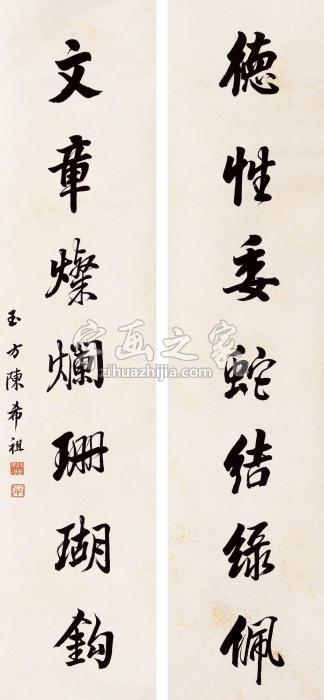 德性委蛇结绿佩
文章燦爛珊瑚鈎
玉方陳希祖
字画之家
zihuazhijia.com